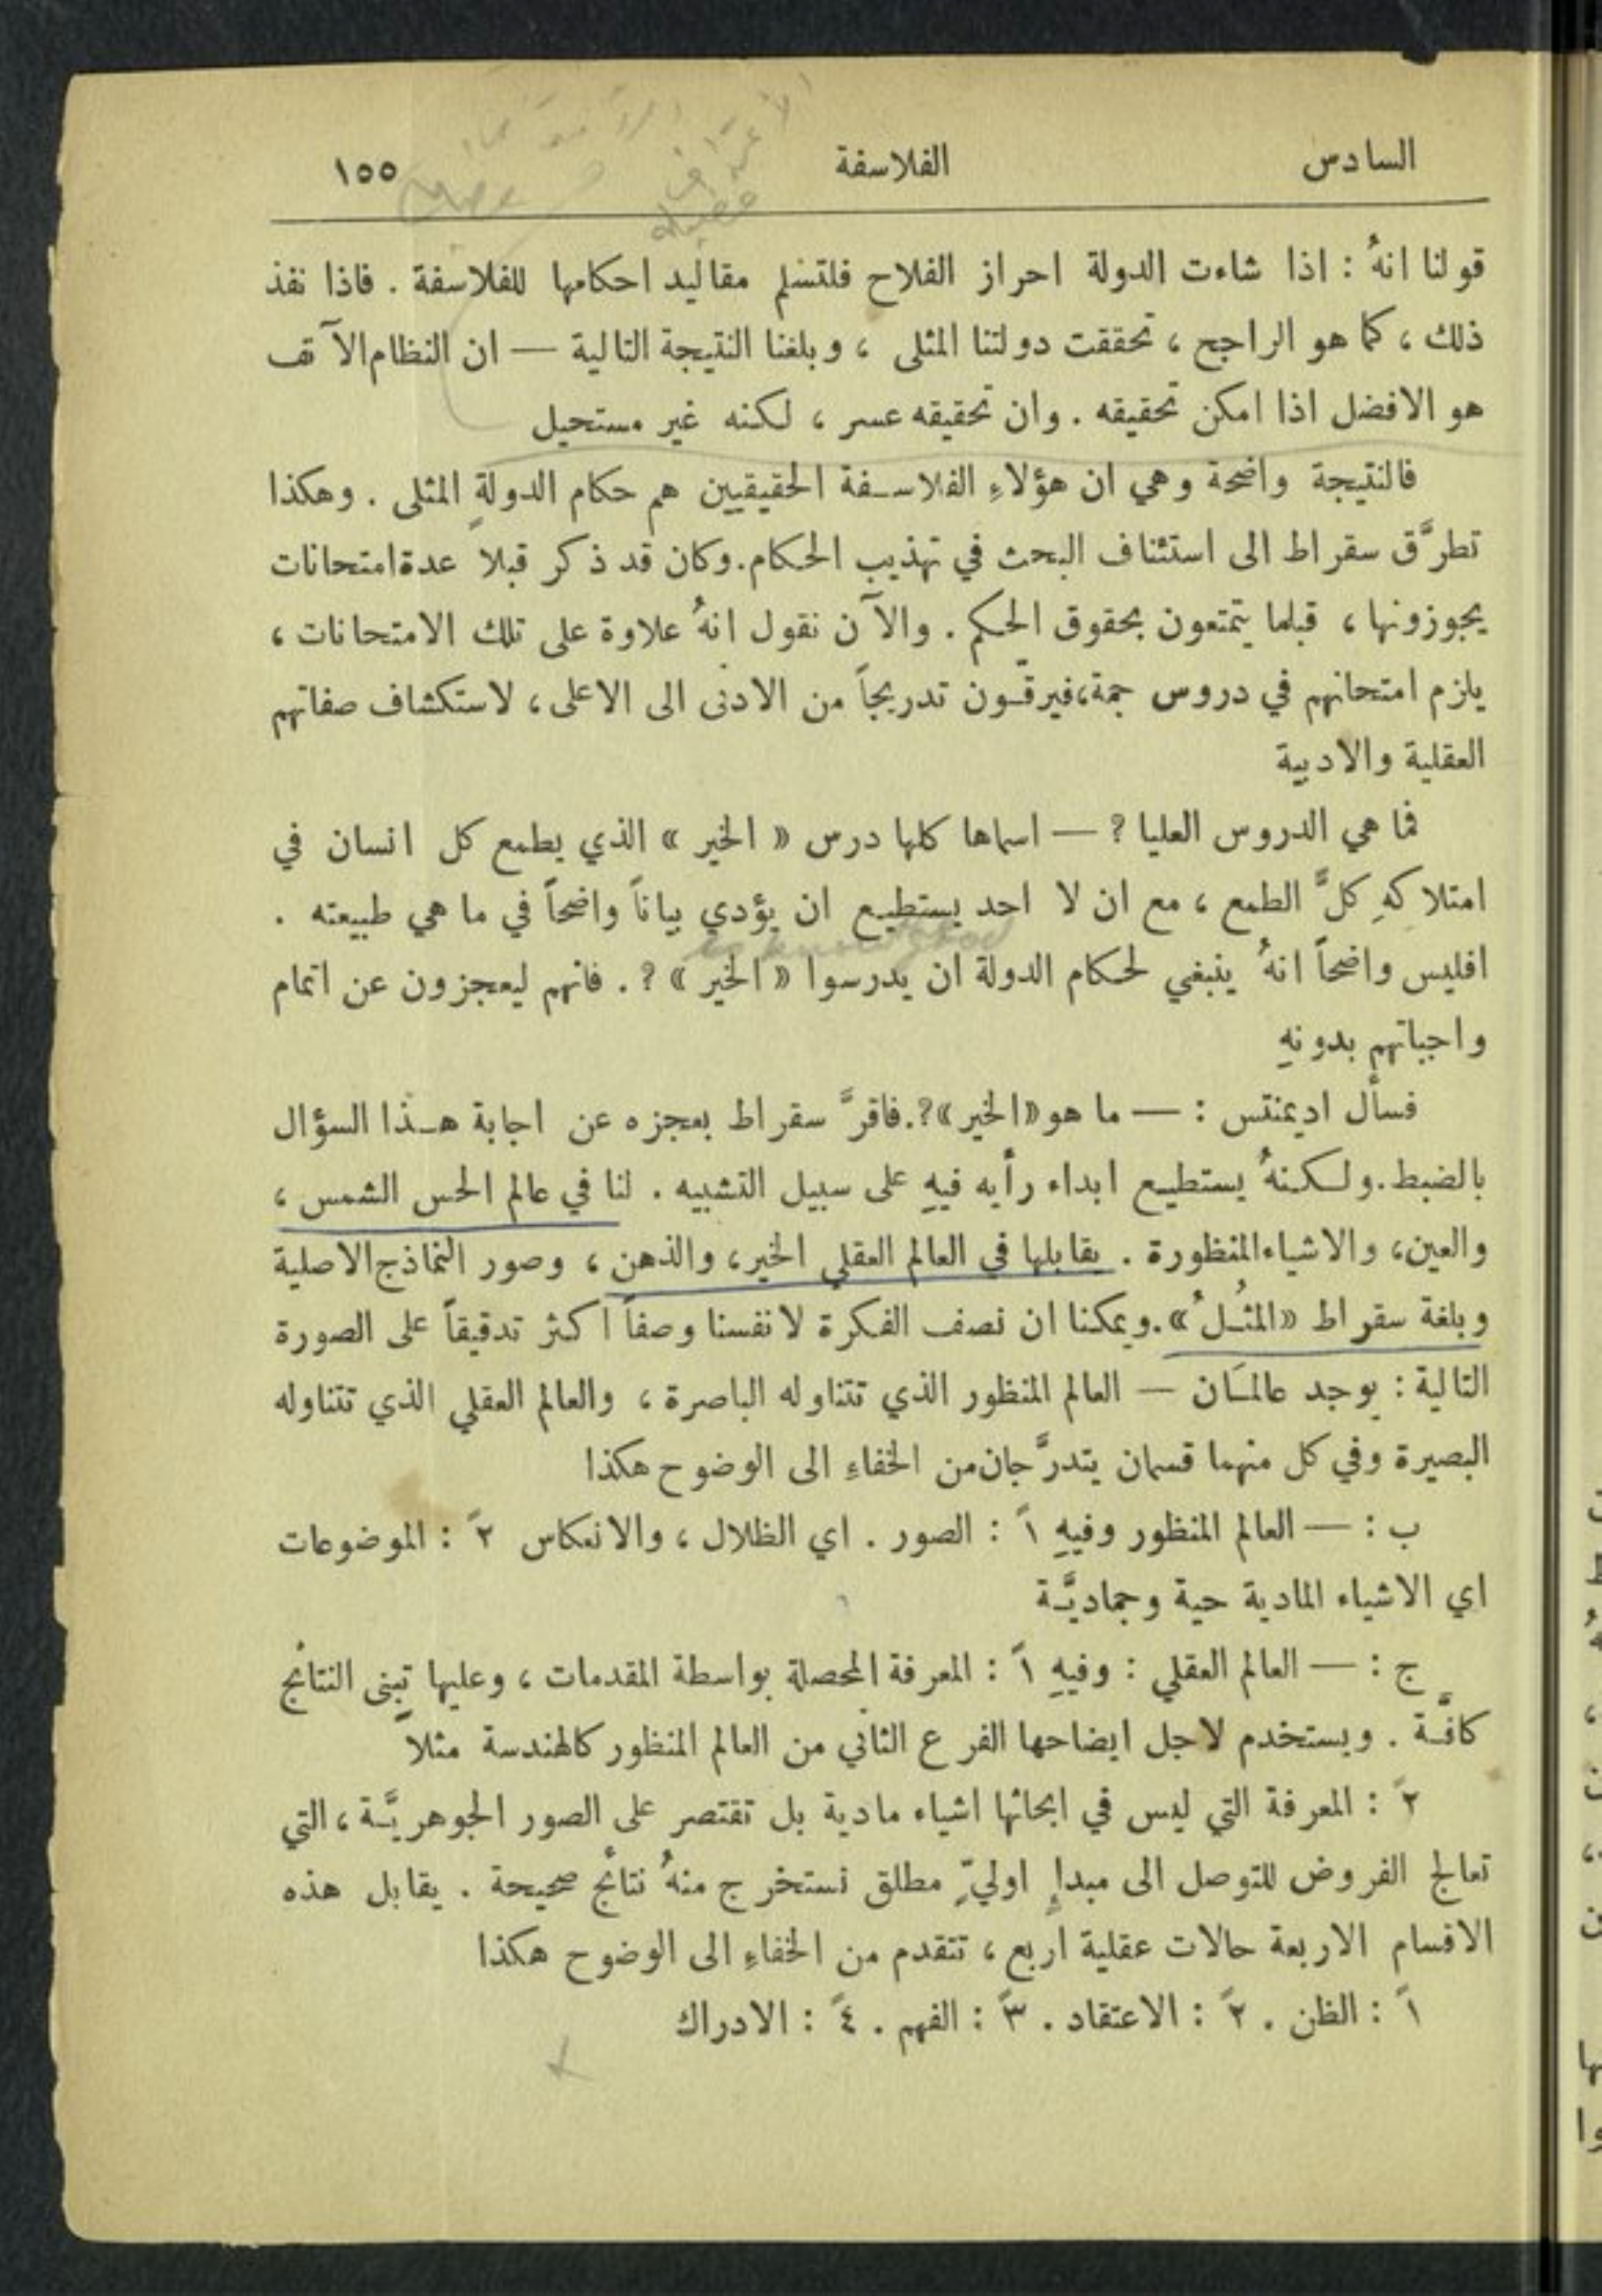 السادس الفلاسفة ١٥٥
قولنا انهُ : اذا شاءت الدولة احراز الفلاح فلتسلم مقاليد احكامها للفلاسفة . فاذا نفذ
ذلك ، كما هو الراجح ، تحققت دولتنا المثلى ، وبلغنا النتيجة التالية — ان النظام الآنف
هو الافضل اذا امكن تحقيقه . وان تحقيقه عسر ، لكنه غير مستحيل
فالنتيجة واضحة وهي ان هؤلاءِ الفلاسفة الحقيقيين هم حكام الدولة المثلى . وهكذا
تطرَّق سقراط الى استئناف البحث في تهذيب الحكام . وكان قد ذكر قبلاً عدة امتحانات
يجوزونها ، قبلما يتمتعون بحقوق الحكم . والآن نقول انهُ علاوة على تلك الامتحانات ،
يلزم امتحانهم في دروس جمة ، فيرقَّون تدريجاً من الادنى الى الاعلى ، لاستكشاف صفاتهم
العقلية والادبية
فما هي الدروس العليا ? — اسماها كلها درس « الخير » الذي يطمع كل انسان في
امتلاكهِ كلَّ الطمع ، مع ان لا احد يستطيع ان يؤدي بياناً واضحاً في ما هي طبيعته .
افليس واضحاً انهُ ينبغي لحكام الدولة ان يدرسوا « الخير » ? . فانهم ليعجزون عن اتمام
واجباتهم بدونهِ
فسأل اديمنتس : — ما هو «الخير» ?. فاقرَّ سقراط بعجزه عن اجابة هـذا السؤال
بالضبط . ولكنهُ يستطيع ابداء رأيه فيهِ على سبيل التشبيه . لنا في عالم الحس الشمس ،
والعين ، والاشياء المنظورة . يقابلها في العالم العقلي الخير ، والذهن ، وصور النماذج الاصلية
وبلغة سقراط «المثُلُ» . ويمكنا ان نصف الفكرة لانفسنا وصفاً اكثر تدقيقاً على الصورة
التالية : يوجد عالمَان — العالم المنظور الذي تتناوله الباصرة ، والعالم العقلي الذي تتناوله
البصيرة وفي كل منهما قسمان يتدرَّجان من الخفاءِ الى الوضوح هكذا
ب : — العالم المنظور وفيهِ ١ً : الصور . اي الظلال ، والانعكاس ٢ً : الموضوعات
اي الاشياء المادية حية وجماديَّة
ج : — العالم العقلي : وفيهِ ١ً : المعرفة المحصلة بواسطة المقدمات ، وعليها تبنى النتائج
كافَّة . ويستخدم لاجل ايضاحها الفرع الثاني من العالم المنظور كالهندسة مثلاً
٢ً : المعرفة التي ليس في ابحاثها اشياء مادية بل تقتصر على الصور الجوهريَّة ، التي
تعالج الفروض للتوصل الى مبدإِ اوليّ مطلق نستخرج منهُ نتائج صحيحة . يقابل هذه
الاقسام الاربعة حالات عقلية اربع ، تتقدم من الخفاءِ الى الوضوح هكذا
١ً : الظن . ٢ً : الاعتقاد . ٣ً : الفهم . ٤ً : الادراك